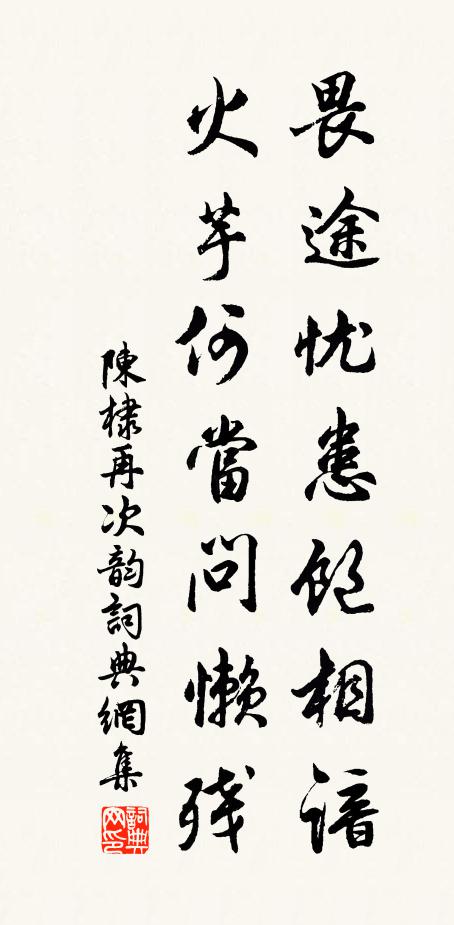 畏途忧患饱相谙
火芋何當问懒残
陳棣再次韵詞典網集
詞典网印